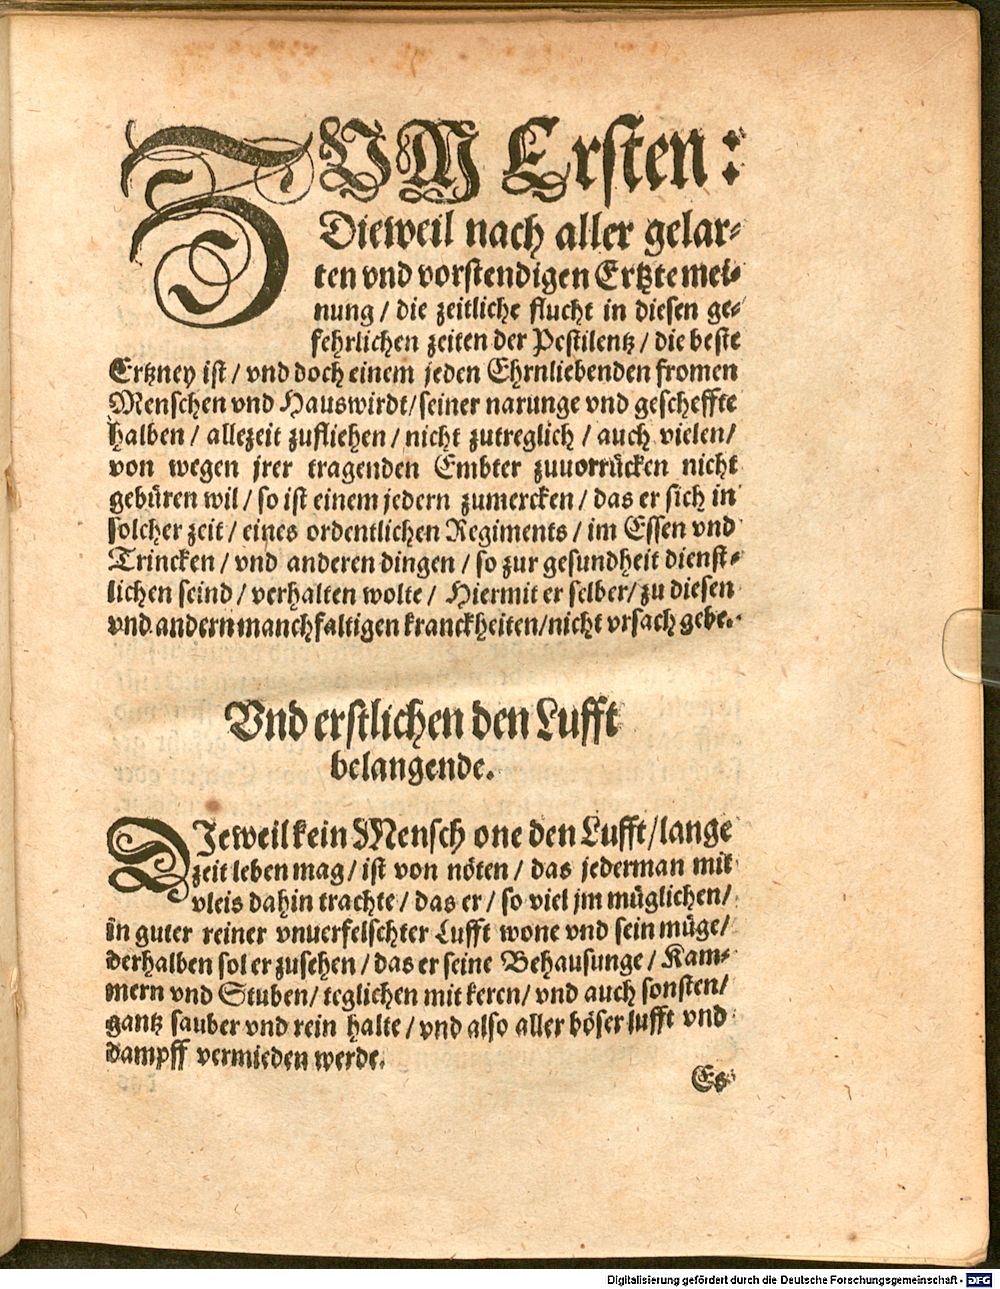 ZVM Ersten:
Dieweil nach aller gelar-
ten vnd vorstendigen Ertzte mei-
nung / die zeitliche flucht in diesen ge-
fehrlichen zeiten der Pestilentz / die beste
Ertzney ist / vnd doch einem jeden Ehrnliebenden fromen
Menschen vnd Hauswirdt / seiner narunge vnd gescheffte
halben / allezeit zufliehen / nicht zutreglich / auch vielen /
von wegen jrer tragenden Embter zuuorrücken nicht
gebüren wil / so ist einem jedern zumercken / das er sich in
solcher zeit / eines ordentlichen Regiments / im Essen vnd
Trincken / vnd anderen dingen / so zur gesundheit dienst-
lichen seind / verhalten wolte / Hiermit er selber / zu diesen
vnd andern manchfaltigen kranckheiten / nicht vrsach gebe.
Vnd erstlichen den Lufft
belangende.
DJeweil kein Mensch one den Lufft / lange
zeit leben mag / ist von nöten / das jederman mit
vleis dahin trachte / das er / so viel jm müglichen /
in guter reiner vnuerfelschter Lufft wone vnd sein müge /
derhalben sol er zusehen / das er seine Behausunge / Kam-
mern vnd Stuben / teglichen mit keren / vnd auch sonsten /
gantz sauber vnd rein halte / vnd also aller böser lufft vnd
dampff vermieden werde.
Es
Digitalisierung gefördert durch die Deutsche Forschungsgemeinschaft - DFG